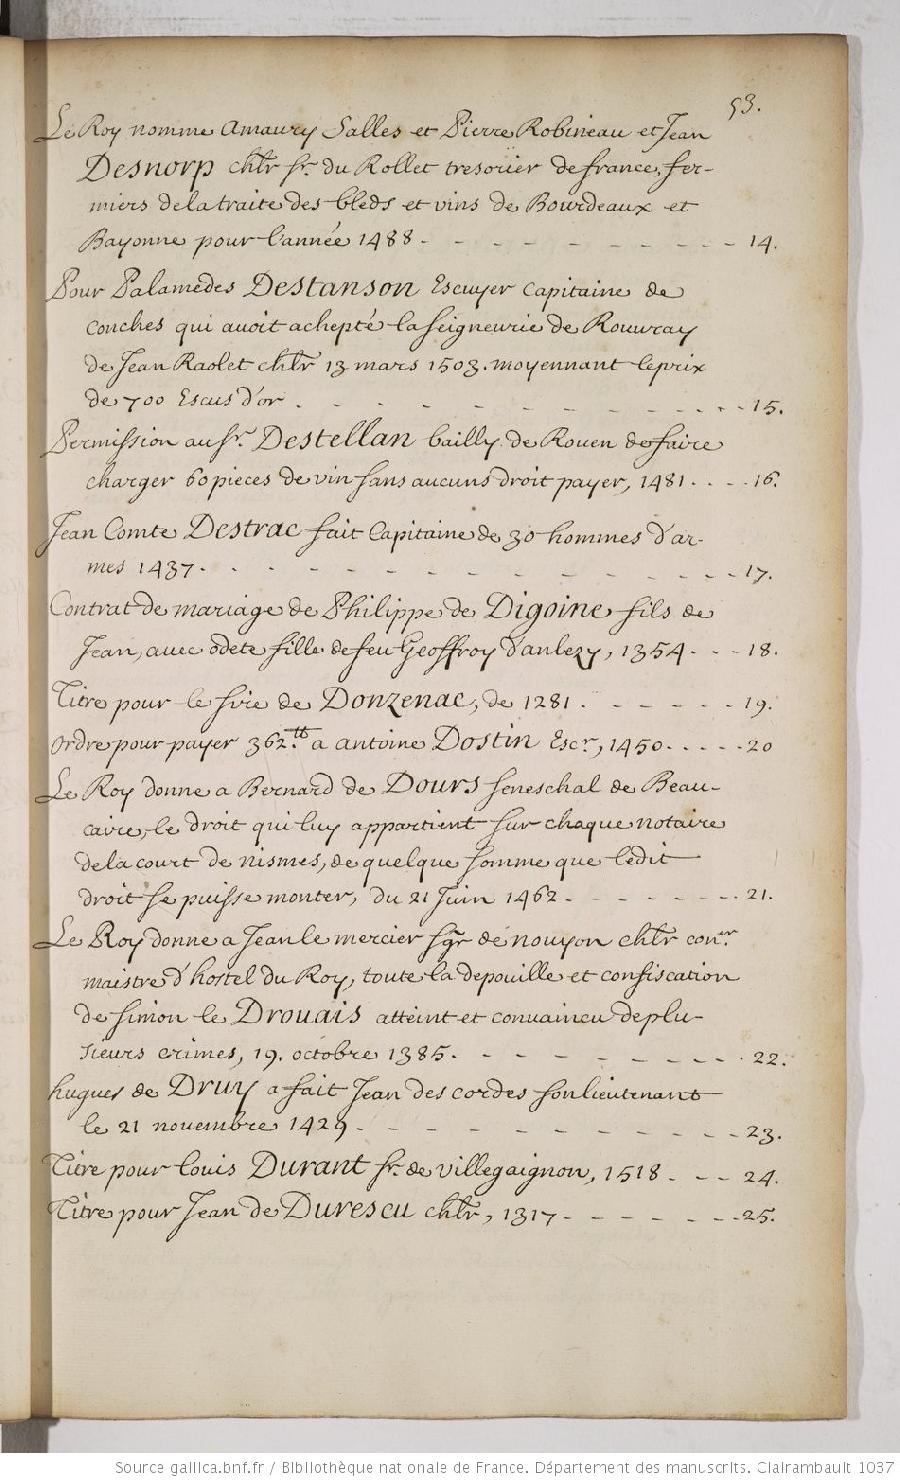 53.
Le Roy nomme Amaury Salles et Pierre Robineau et Jean
Desnorp chlr sr. du Rollet tresorier de france, fer-
miers de la traite des bleds et vins de Bourdeaux et
Bayonne pour l'année 1488 - - - - - - - - - 14.
Pour Palamedes Destanson Escuyer Capitaine de
Conches qui avoit achepté la seigneurie de Rouvray
de Jean Raolet chlr 13 mars 1503. moyennant le prix
de 700 Escus d'or . - - - - - - - - - - - 15.
Permission au sr. Destellan bailly de Rouen de faire
charger 60 pieces de vin sans aucuns droit payer, 1481 . . - - 16.
Jean Comte Destrac fait Capitaine de 30 hommes d'ar-
mes 1437 - - - - - - - - - - - - - 17.
Contrat de mariage de Philippe de Digoine fils de
Jean, avec odete fille de feu Geoffroy d'anlezy, 1354 - - - 18.
Titre pour le sire de Donzenac, de 1281 . - - - - - 19.
Ordre pour payer 362.tt a antoine Dostin Escr, 1450 . . . . . 20
Le Roy donne a Bernard de Dours seneschal de Beau-
caire, le droit qui luy appartient sur chaque notaire
de la court de nismes, de quelque somme que ledit
droit se puisse monter, du 21 Juin 1462 - - - - - - - 21.
Le Roy donne a Jean le mercier sgr de nouyon chlr coner
maistre d'hostel du Roy, toute la depouille et confiscation
de simon le Drouais atteint et convaincu de plu-
sieurs crimes, 19. octobre 1385 - - - - - - - - - 22.
hugues de Druy a fait Jean des cordes son lieutenant
le 21 novembre 1429 - - - - - - - - - - 23.
Titre pour louis Durant sr. de villegaignon, 1518 - - - 24.
Titre pour Jean de Durescu chlr, 1317 - - - - - - - 25.
Source gallica.bnf.fr / Bibliothèque nationale de France. Département des manuscrits. Clairambault 1037